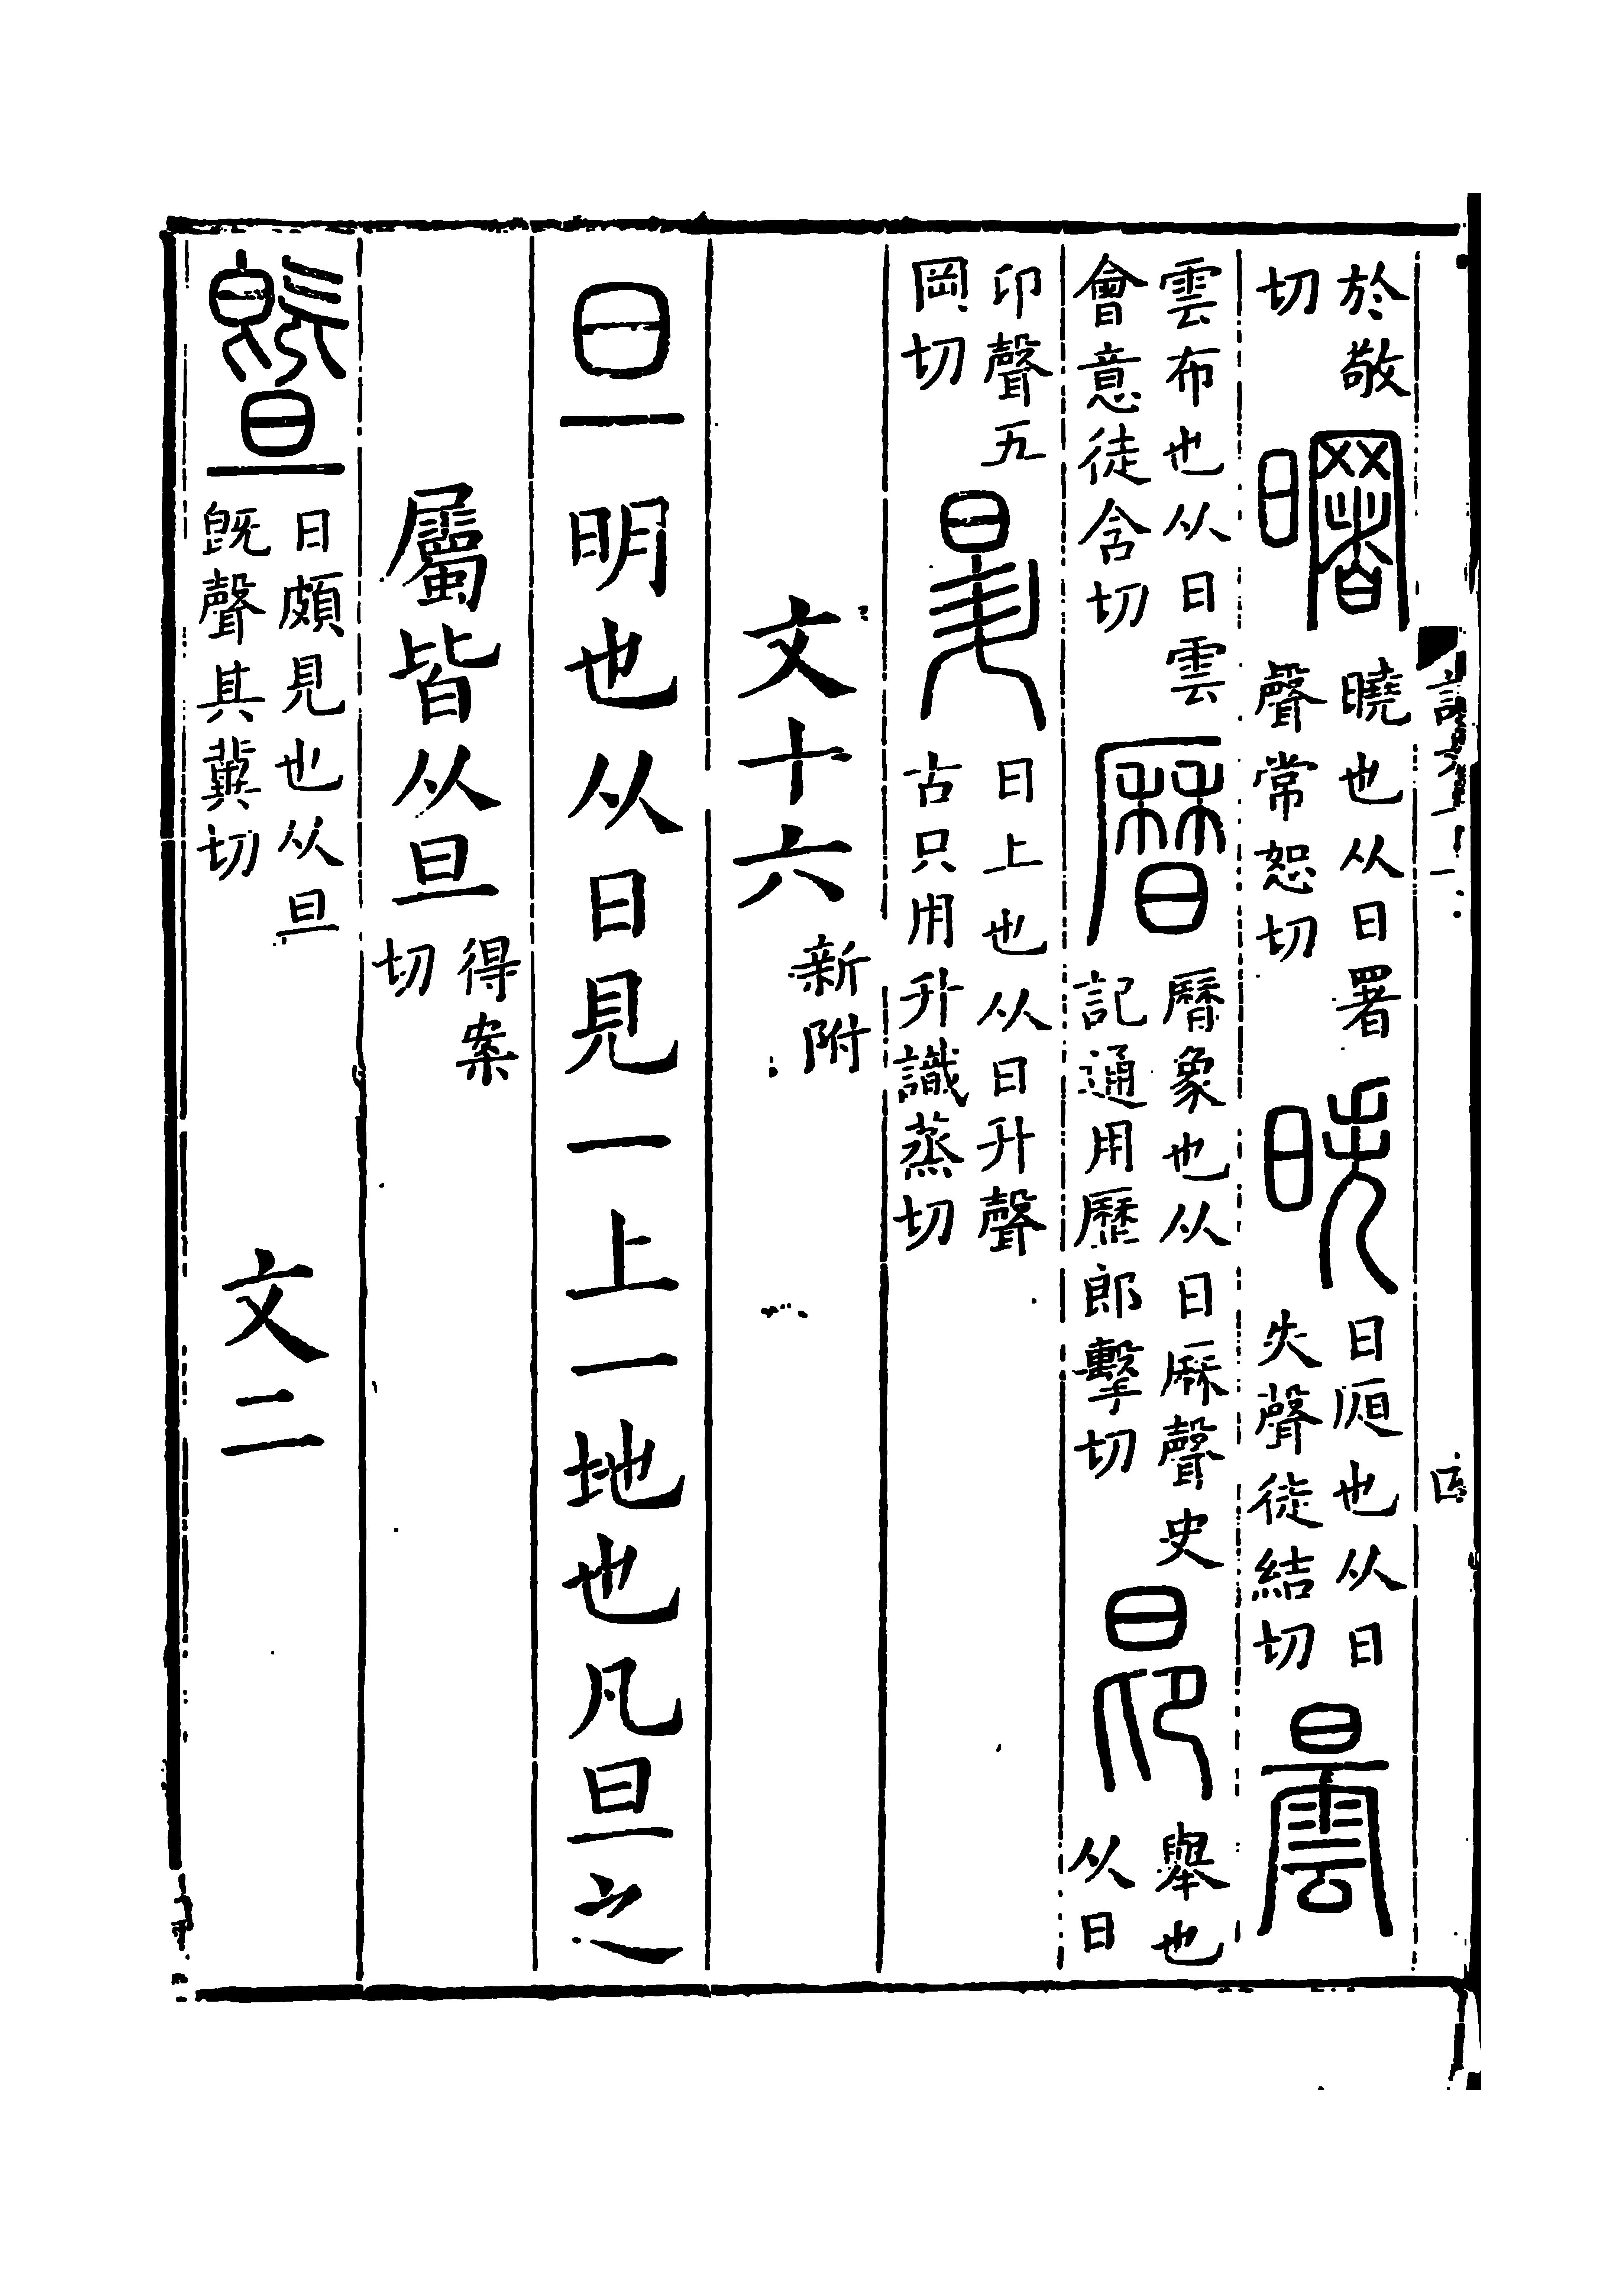 於敬切曙曉也从日署聲常恕切昳日也从日失聲徒結切曇
雲布也从日雲會意徒含切曆曆象也从日厤聲史記通用歷郎擊切昂舉也从日
卬聲五岡切昇日上也从日升聲古只用升識蒸切
文十六新附
旦明也从日見一上一地也凡旦之
屬皆从旦得案切
暨日頗見也从旦旣聲其冀切文二